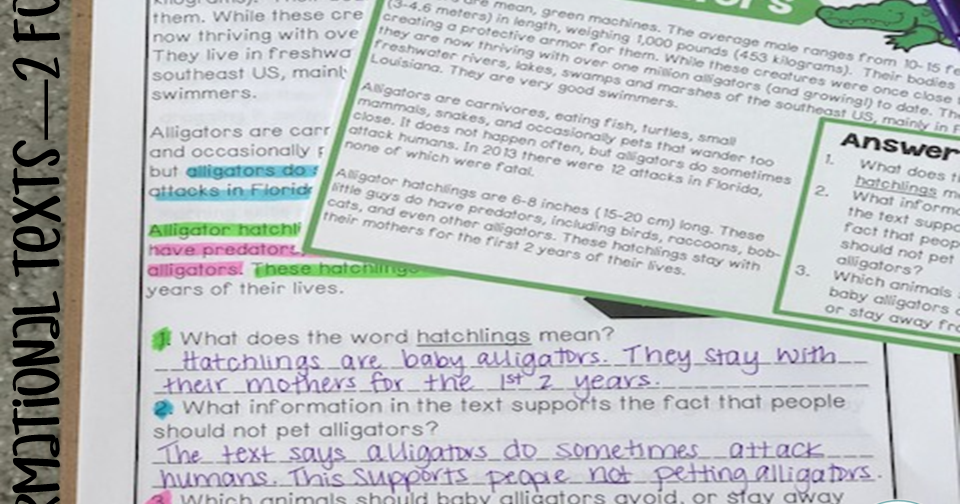 RMATIONAL TEXTS—2 FO
them. While these cre
now thriving with ove
They live in freshwa
southeast US, mainl
swimmers.
Alligators are carr
and occasionally
but alligators do s
attacks in Florid
Alligator hatchli
have predators,
alligators. These hatchlings
years of their lives.
1. What does the word hatchlings mean?
Hatchlings are baby alligators. They stay with
their mothers for the 1st 2 years.
2. What information in the text supports the fact that people
should not pet alligators?
The text says alligators do sometimes attack
humans. This supports people not petting alligators.
3. Which animals should baby alligators avoid, or stay away
are mean, green machines. The average male ranges from 10-15 fe
(3-4.6 meters) in length, weighing 1,000 pounds (453 kilograms). Their bodies
creating a protective armor for them. While these creatures were once close
they are now thriving with over one million alligators (and growing!) to date. The
freshwater rivers, lakes, swamps and marshes of the southeast US, mainly in F
Louisiana. They are very good swimmers.
Alligators are carnivores, eating fish, turtles, small
mammals, snakes, and occasionally pets that wander too
close. It does not happen often, but alligators do sometimes
attack humans. In 2013 there were 12 attacks in Florida,
none of which were fatal.
Alligator hatchlings are 6-8 inches (15-20 cm) long. These
little guys do have predators, including birds, raccoons, bob-
cats, and even other alligators. These hatchlings stay with
their mothers for the first 2 years of their lives.
Answer
1. What does th
hatchlings m
2. What inform
the text suppo
fact that peop
should not pet
alligators?
3. Which animals
baby alligators
or stay away fro